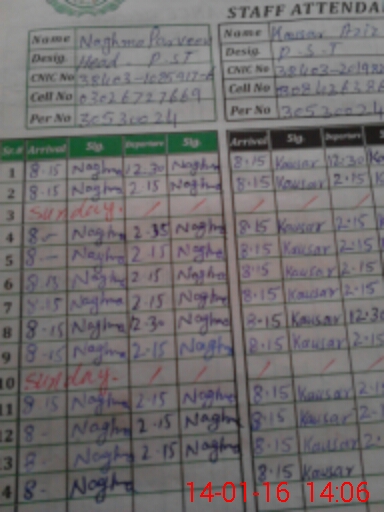 STAFF ATTENDA
Name Naghma Parveen Name Kausar Aziz
Desig. Head P.S.T Desig. P.S.T
CNIC No 38403- CNIC No 38403-
Cell No 03026727669 Cell No
Per No 30530024 Per No 30530024
Sr.# Arrival Sig. Departure Sig. Arrival Sig. Departure
1 8.15 Naghma 12.30 Naghma 8.15 Kausar 12.30
2 8.15 Naghma 2.15 Naghma 8.15 Kausar 2.15
3 Sunday. / / / / /
4 8.- Naghma 2.35 Naghma 8.15 Kausar 2.15
5 8.- Naghma 2.15 Naghma 8.15 Kausar 2.15
6 8.15 Naghma 2.15 Naghma 8.15 Kausar 2.15
7 8.15 Naghma 2.15 Naghma 8.15 Kausar 2.15
8 8.15 Naghma 12.30 Naghma 8.15 Kausar 12.30
9 8.15 Naghma 2.15 Naghma 8.15 Kausar 2.15
10 Sunday. / / / / /
11 8.15 Naghma 2.15 Naghma 8.15 Kausar 2.15
12 8.- Naghma 2.15 Naghma 8.15 Kausar 2.15
13 8.- Naghma 2.15 Naghma 8.15 Kausar 2.
4 8.- Naghma 8.15 Kausar
14-01-16 14:06